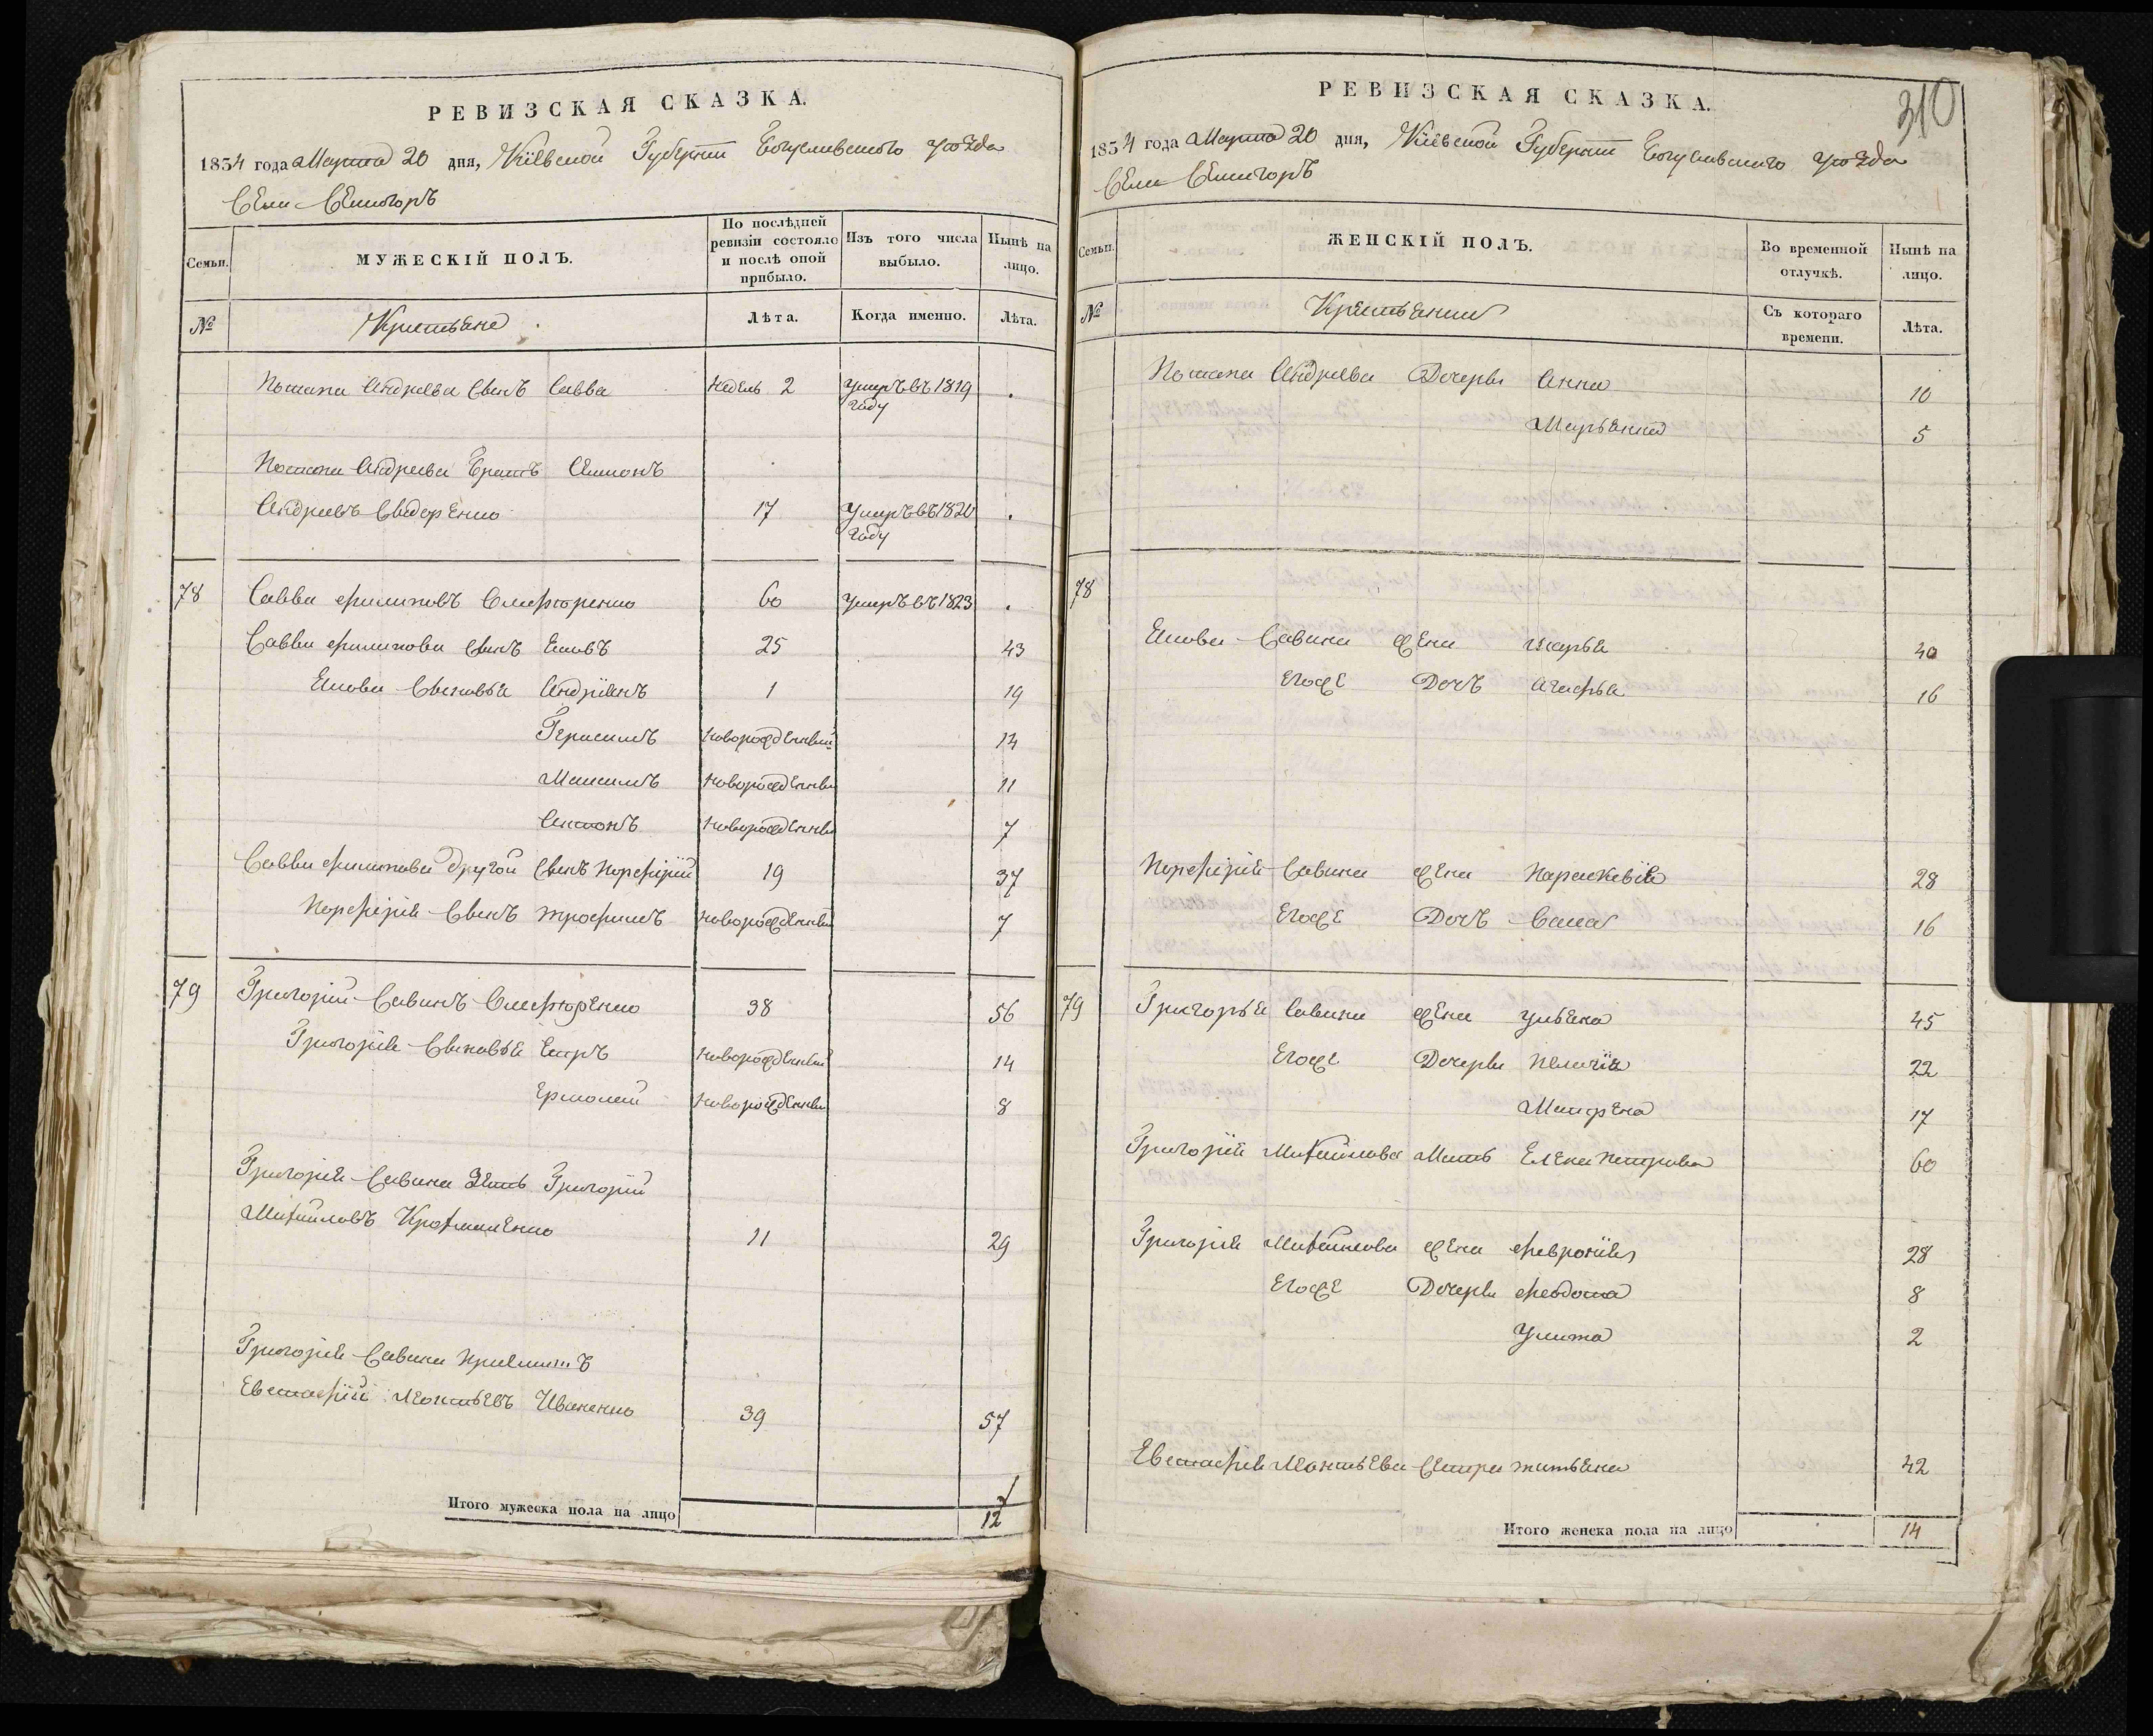 РЕВИЗСКАЯ СКАЗКА.
1834 года Марта 20 дня, Кіевской Губерніи Богуславского уѣзда
Села Семигоръ
Семьи.
МУЖЕСКІЙ ПОЛЪ.
По послѣдней ревизіи состояло и послѣ оной прибыло.
Изъ того числа выбыло.
Нынѣ на лицо.
№
Крестьяне
Лѣта.
Когда именно.
Лѣта.
Потапа Андреева Сынъ Савва недель 2 умеръ въ 1819 году .
Потапа Андреева Братъ Симонъ
Андреевъ Сидоренко 17 Умеръ въ 1820 году .
78 Савва Филиповъ 60 Умеръ въ 1823 .
Саввы Филипова Сынъ Яковъ 25 43
Якова Сыновья Андріянъ 1 19
Герасимъ новорожденный 14
Максимъ новорожденный 11
Антонъ новорожденный 7
Саввы Филипова другой Сынъ Порфирій 19 37
Порфирія Сынъ Трофимъ новорожденный 7
79 Григорій Савинъ 38 56
Григорія Сыновья новорожденный 14
Ермолай новорожденный 8
Григорія Савина Зять Григорій
Михайловъ 11 29
Григорія Савина
Евстафій Леонтьевъ Иваненко 39 57
Итого мужеска пола на лицо 12
РЕВИЗСКАЯ СКАЗКА.
310
1834 года Марта 20 дня, Кіевской Губерніи Богуславского уѣзда
Села Семигоръ
Семьи.
ЖЕНСКІЙ ПОЛЪ.
Во временной отлучкѣ.
Нынѣ на лицо.
№
Крестьянки
Съ котораго времени.
Лѣта.
Потапа Андреева Дочеры Анна 10
Марьяна 5
78
Якова Савина жена Марья 40
Егоже Дочъ Агафья 16
Порфирія Савина жена Параскевія 28
Егоже Дочъ 16
79 Григорья Савина жена Ульяна 45
Егоже Дочеры Пелагія 22
Матрена 17
Григорія Михайлова Мать Елена Петрова 60
Григорія Михайлова жена Февронія 28
Егоже Дочеры Феодота 8
Улита 2
Евстафія Леонтьева Сестра Татьяна 42
Итого женска пола на лицо 14